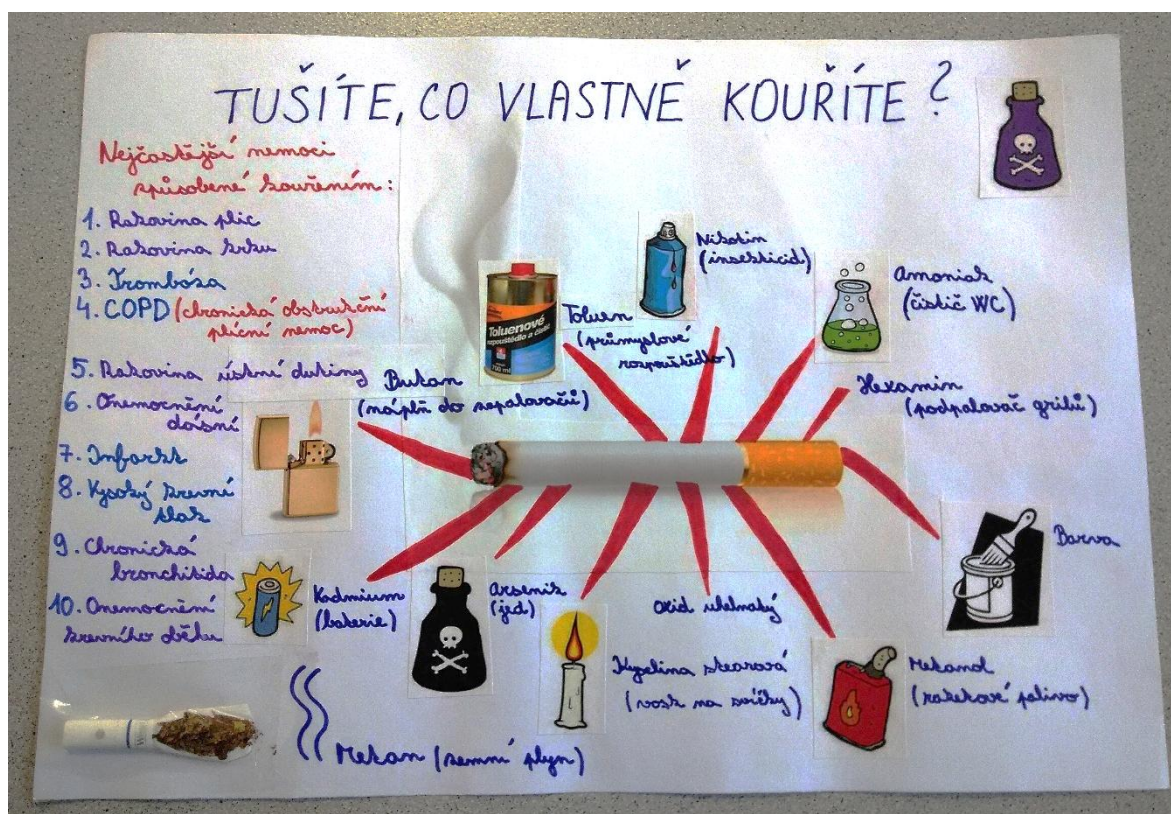 TUŠÍTE, CO VLASTNĚ KOUŘÍTE?
Nejčastější nemoci
způsobené kouřením:
1. Rakovina plic
2. Rakovina krku
3. Trombóza
4. COPD (chronická obstrukční
plicní nemoc)
5. Rakovina ústní dutiny
6. Onemocnění
dásní
7. Infarkt
8. Vysoký krevní
tlak
9. Chronická
bronchitida
10. Onemocnění
krevního oběhu
Nikotin
(insekticid)
Amoniak
(čistič WC)
Toluenové
rozpouštědlo a čistič
700 ml
Toluen
(průmyslové
rozpouštědlo)
Butan
(náplň do zapalovačů)
Hexamin
(podpalovač grilů)
Barva
Kadmium
(baterie)
Arsenik
(jed)
oxid uhelnatý
Kyselina stearová
(vosk na svíčky)
Metanol
(raketové palivo)
Metan (zemní plyn)